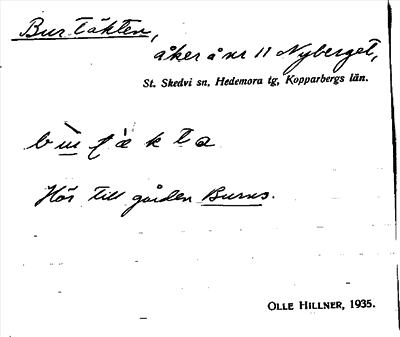 Burtäkten,
åker å nr 11 Nyberget,
St. Skedvi sn, Hedemora tg, Kopparbergs län.
Hör till gården Burns.
OLLE HILLNER, 1935.